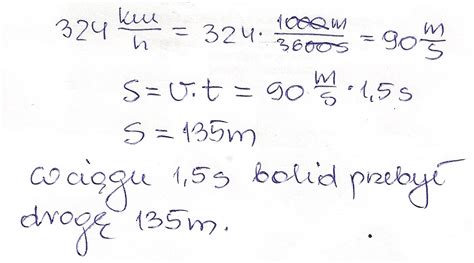 324 km/h = 324 · 1000m/3600s = 90 m/s
S = v · t = 90 m/s · 1,5 s
S = 135m
W ciągu 1,5s bolid przebył
drogę 135m.